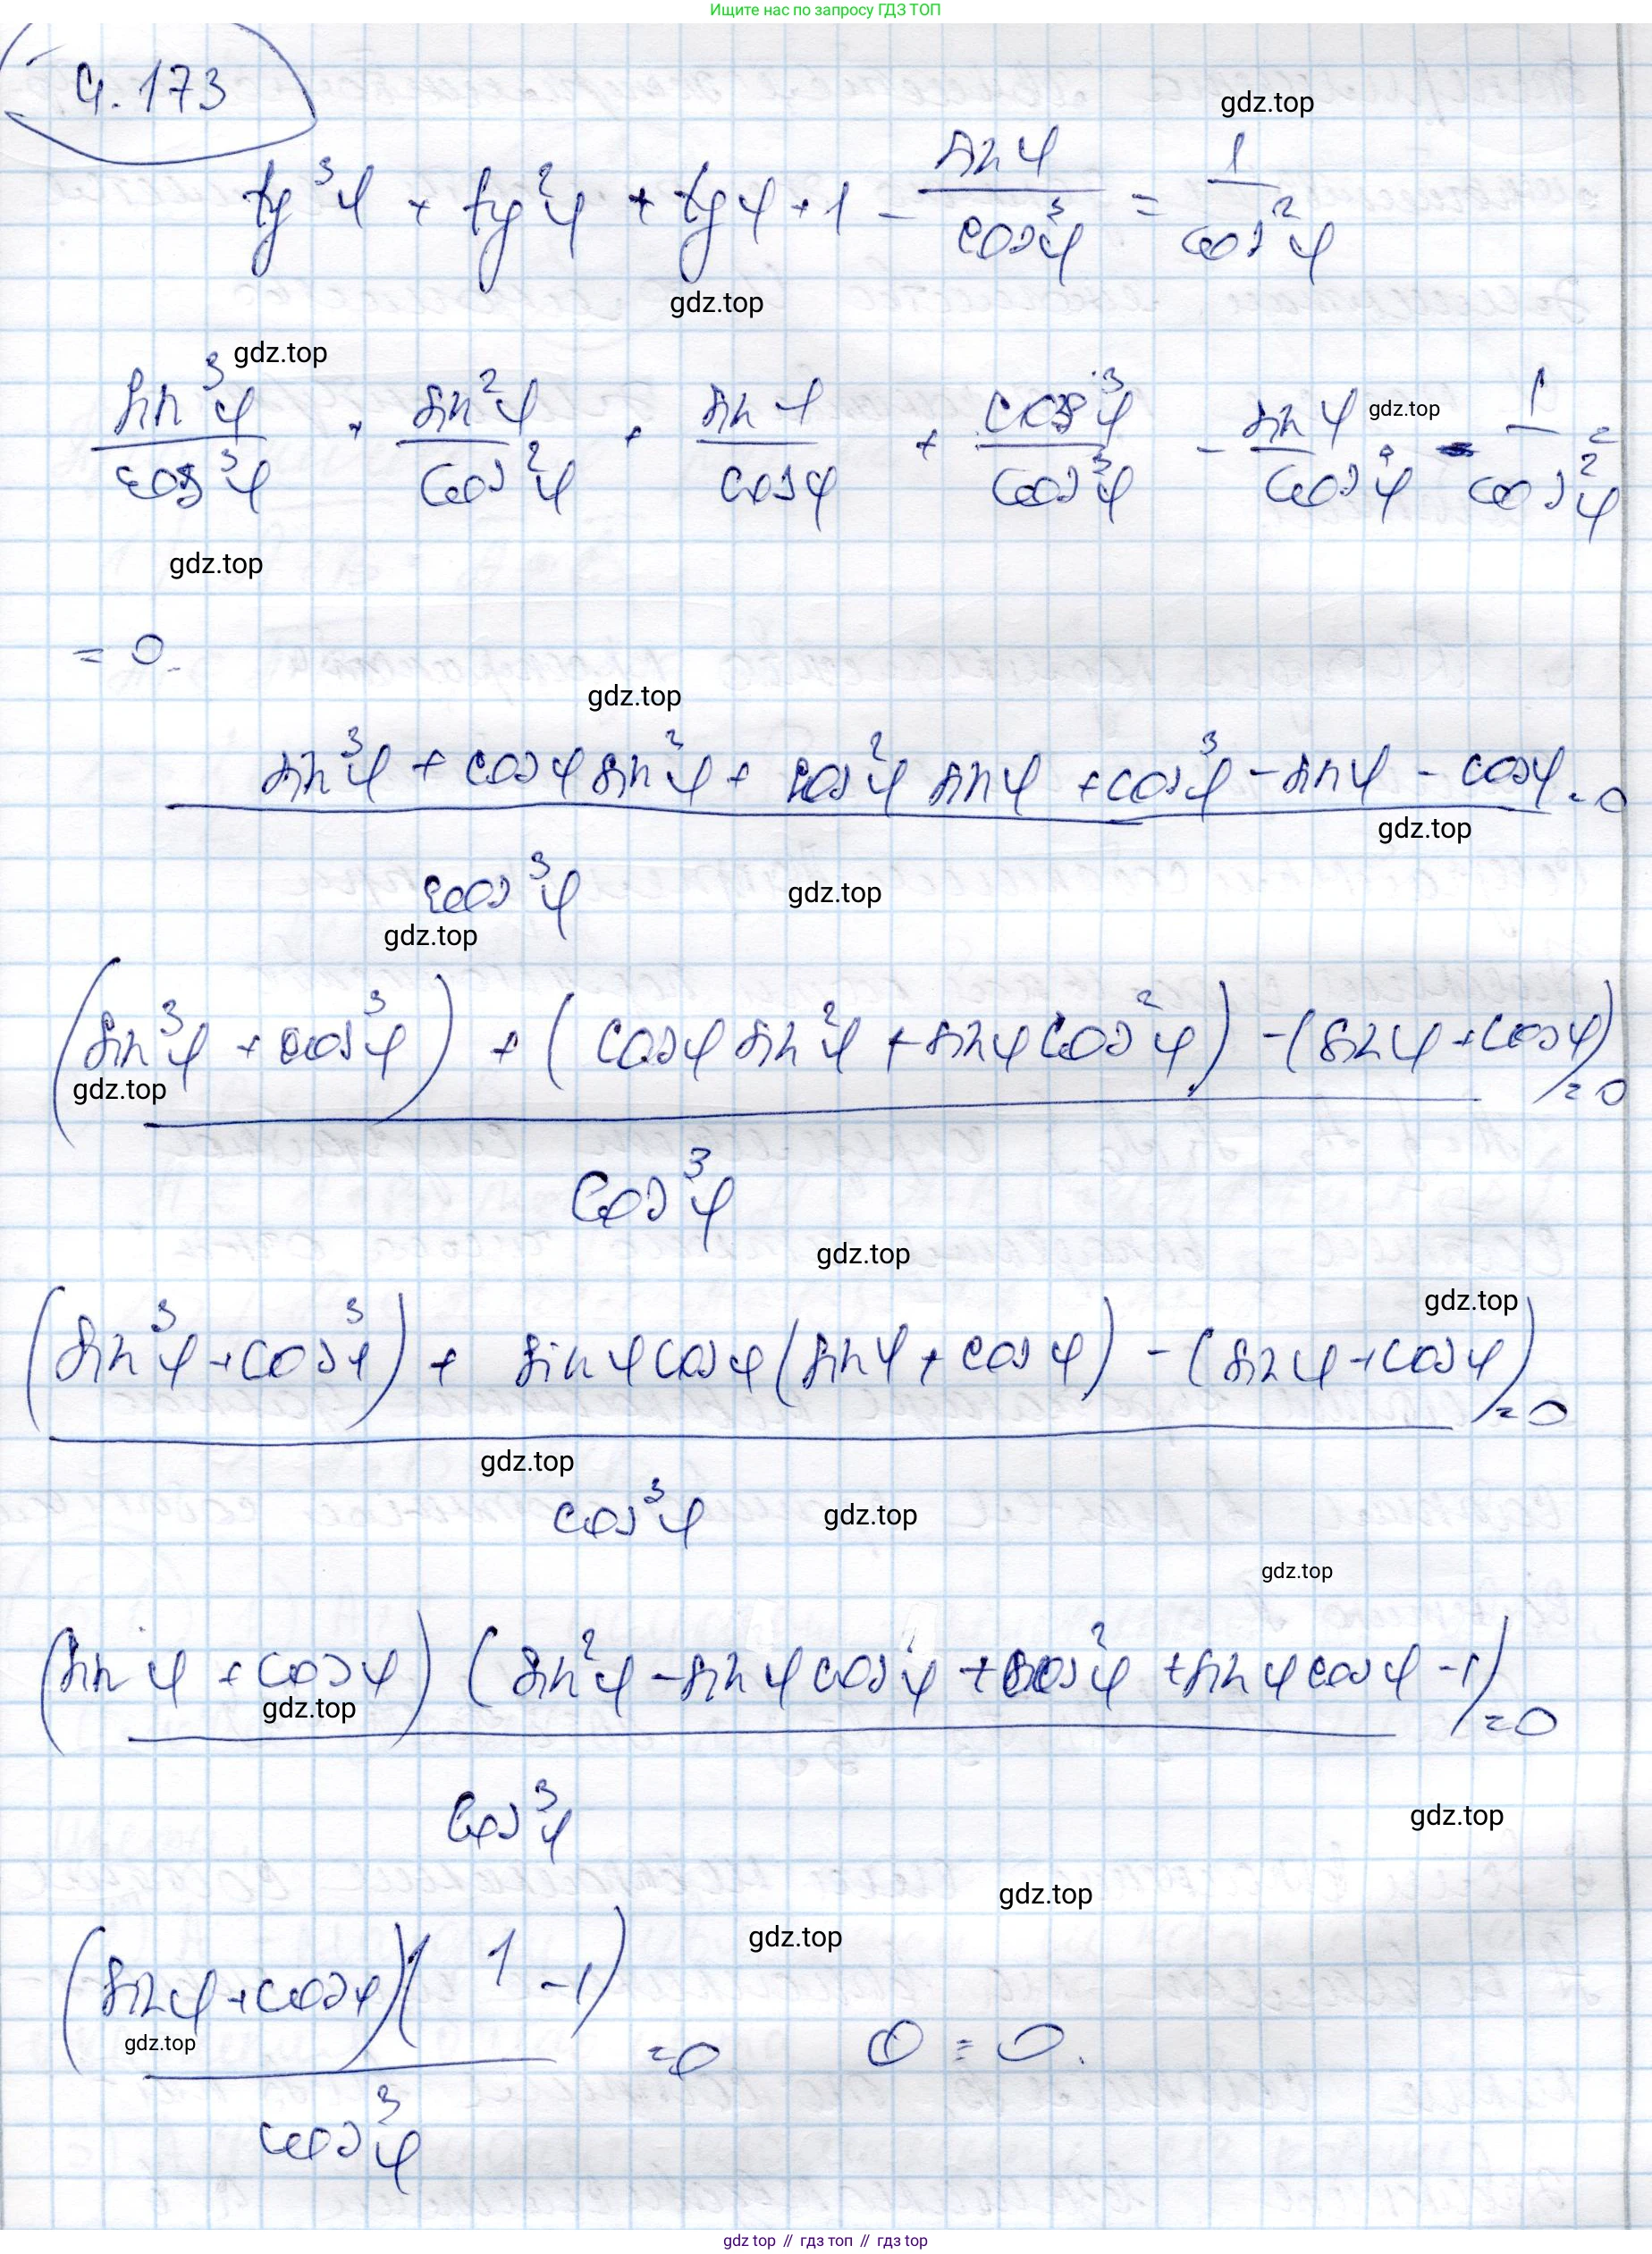 Ищите нас по запросу ГДЗ ТОП
4.173
gdz.top
tg³φ + tg²φ + tgφ + 1 - sinφ/cos³φ = 1/cos²φ
gdz.top
gdz.top
sin³φ/cos³φ + sin²φ/cos²φ + sinφ/cosφ + cos³φ/cos³φ - sinφ/cos³φ - 1/cos²φ
gdz.top
gdz.top
= 0.
gdz.top
(sin³φ + cosφ sin²φ + cos²φ sinφ + cos³φ - sinφ - cosφ)/cos³φ = 0
gdz.top
gdz.top
gdz.top
((sin³φ + cos³φ) + (cosφ sin²φ + sinφ cos²φ) - (sinφ + cosφ))/cos³φ = 0
gdz.top
gdz.top
gdz.top
((sin³φ + cos³φ) + sinφ cosφ (sinφ + cosφ) - (sinφ + cosφ))/cos³φ = 0
gdz.top
gdz.top
gdz.top
(sinφ + cosφ) (sin²φ - sinφ cosφ + cos²φ + sinφ cosφ - 1)/cos³φ = 0
gdz.top
gdz.top
gdz.top
gdz.top
(sinφ + cosφ)(1 - 1)/cos³φ = 0 0 = 0.
gdz.top
gdz top // гдз топ // гдз top